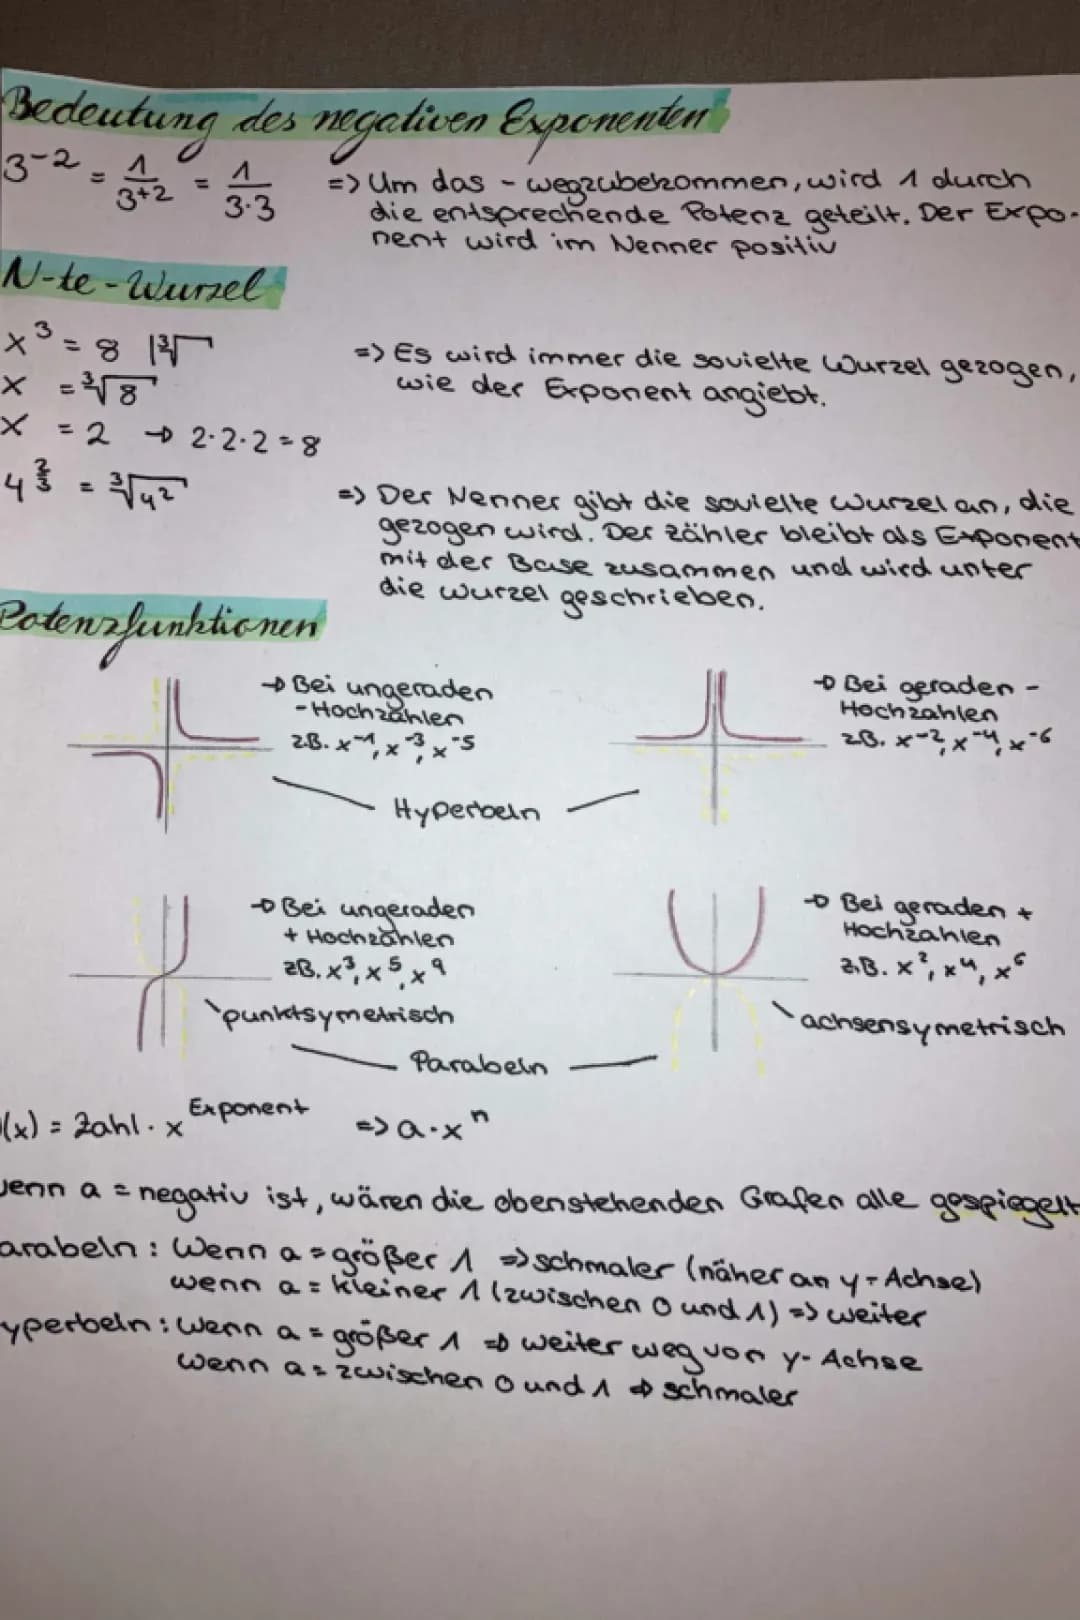 Bedeutung des negativen Exponenten
3⁻² = 1/3⁺² = 1/3·3
=> Um das - wegzubekommen, wird 1 durch
die entsprechende Potenz geteilt. Der Expo-
nent wird im Nenner positiv
N-te-Wurzel
x³ = 8 |³√
x = ³√8
x = 2 → 2·2·2 = 8
=> Es wird immer die sovielte Wurzel gezogen,
wie der Exponent angiebt.
4^(2/3) = ³√4²
=> Der Nenner gibt die sovielte Wurzel an, die
gezogen wird. Der Zähler bleibt als Exponent
mit der Base zusammen und wird unter
die Wurzel geschrieben.
Potenzfunktionen
→ Bei ungeraden
- Hochzahlen
z.B. x⁻¹, x⁻³, x⁻⁵
→ Bei geraden -
Hochzahlen
z.B. x⁻², x⁻⁴, x⁻⁶
Hyperbeln
→ Bei ungeraden
+ Hochzahlen
z.B. x³, x⁵, x⁹
punktsymetrisch
→ Bei geraden +
Hochzahlen
z.B. x², x⁴, x⁶
achsensymetrisch
Parabeln
(x) = Zahl · x^Exponent => a·xⁿ
enn a = negativ ist, wären die obenstehenden Grafen alle gespiegelt
arabeln: Wenn a = größer 1 => schmaler (näher an y-Achse)
wenn a = kleiner 1 (zwischen 0 und 1) => weiter
yperbeln: Wenn a = größer 1 → weiter weg von y-Achse
wenn a = zwischen 0 und 1 → schmaler